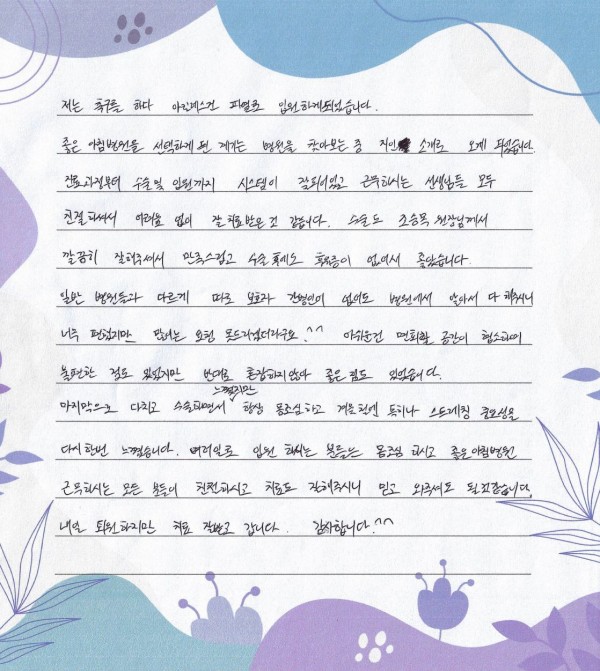 저는 축구를 하다 아킬레스건 파열로 입원하게되었습니다.
좋은아침병원을 선택하게 된 계기는 병원을 찾아보는 중 지인 소개로 오게 되었습니다.
진료과정부터 수술 및 입원까지 시스템이 잘되어있고 근무하시는 선생님들 모두
친절하셔서 어려움 없이 잘 치료받은 것 같습니다. 수술도 조승목 원장님께서
깔끔히 잘해주셔서 만족스럽고 수술 후에도 후유증이 없어서 좋았습니다.
일반 병원들과 다르게 따로 보호자 간병인이 없어도 병원에서 알아서 다 해주시니
너무 편했지만 말리는 못드리겠더라구요.^^ 아쉬운건 면회할 공간이 협소하여
불편한 점도 있었지만 반대로 혼잡하지않아 좋은 점도 있었습니다.
마지막으로 다치고 수술하면서 느꼈지만 항상 몸조심하고 겨울철엔 특히나 스트레칭 중요성을
다시한번 느꼈습니다. 여러일로 입원 하시는 분들은 몸조심 하시고 좋은아침병원
근무하시는 모든 분들이 친절하시고 치료도 잘해주시니 믿고 와주셔도 될것같습니다.
내일 퇴원하지만 치료 잘받고 갑니다. 감사합니다.^^